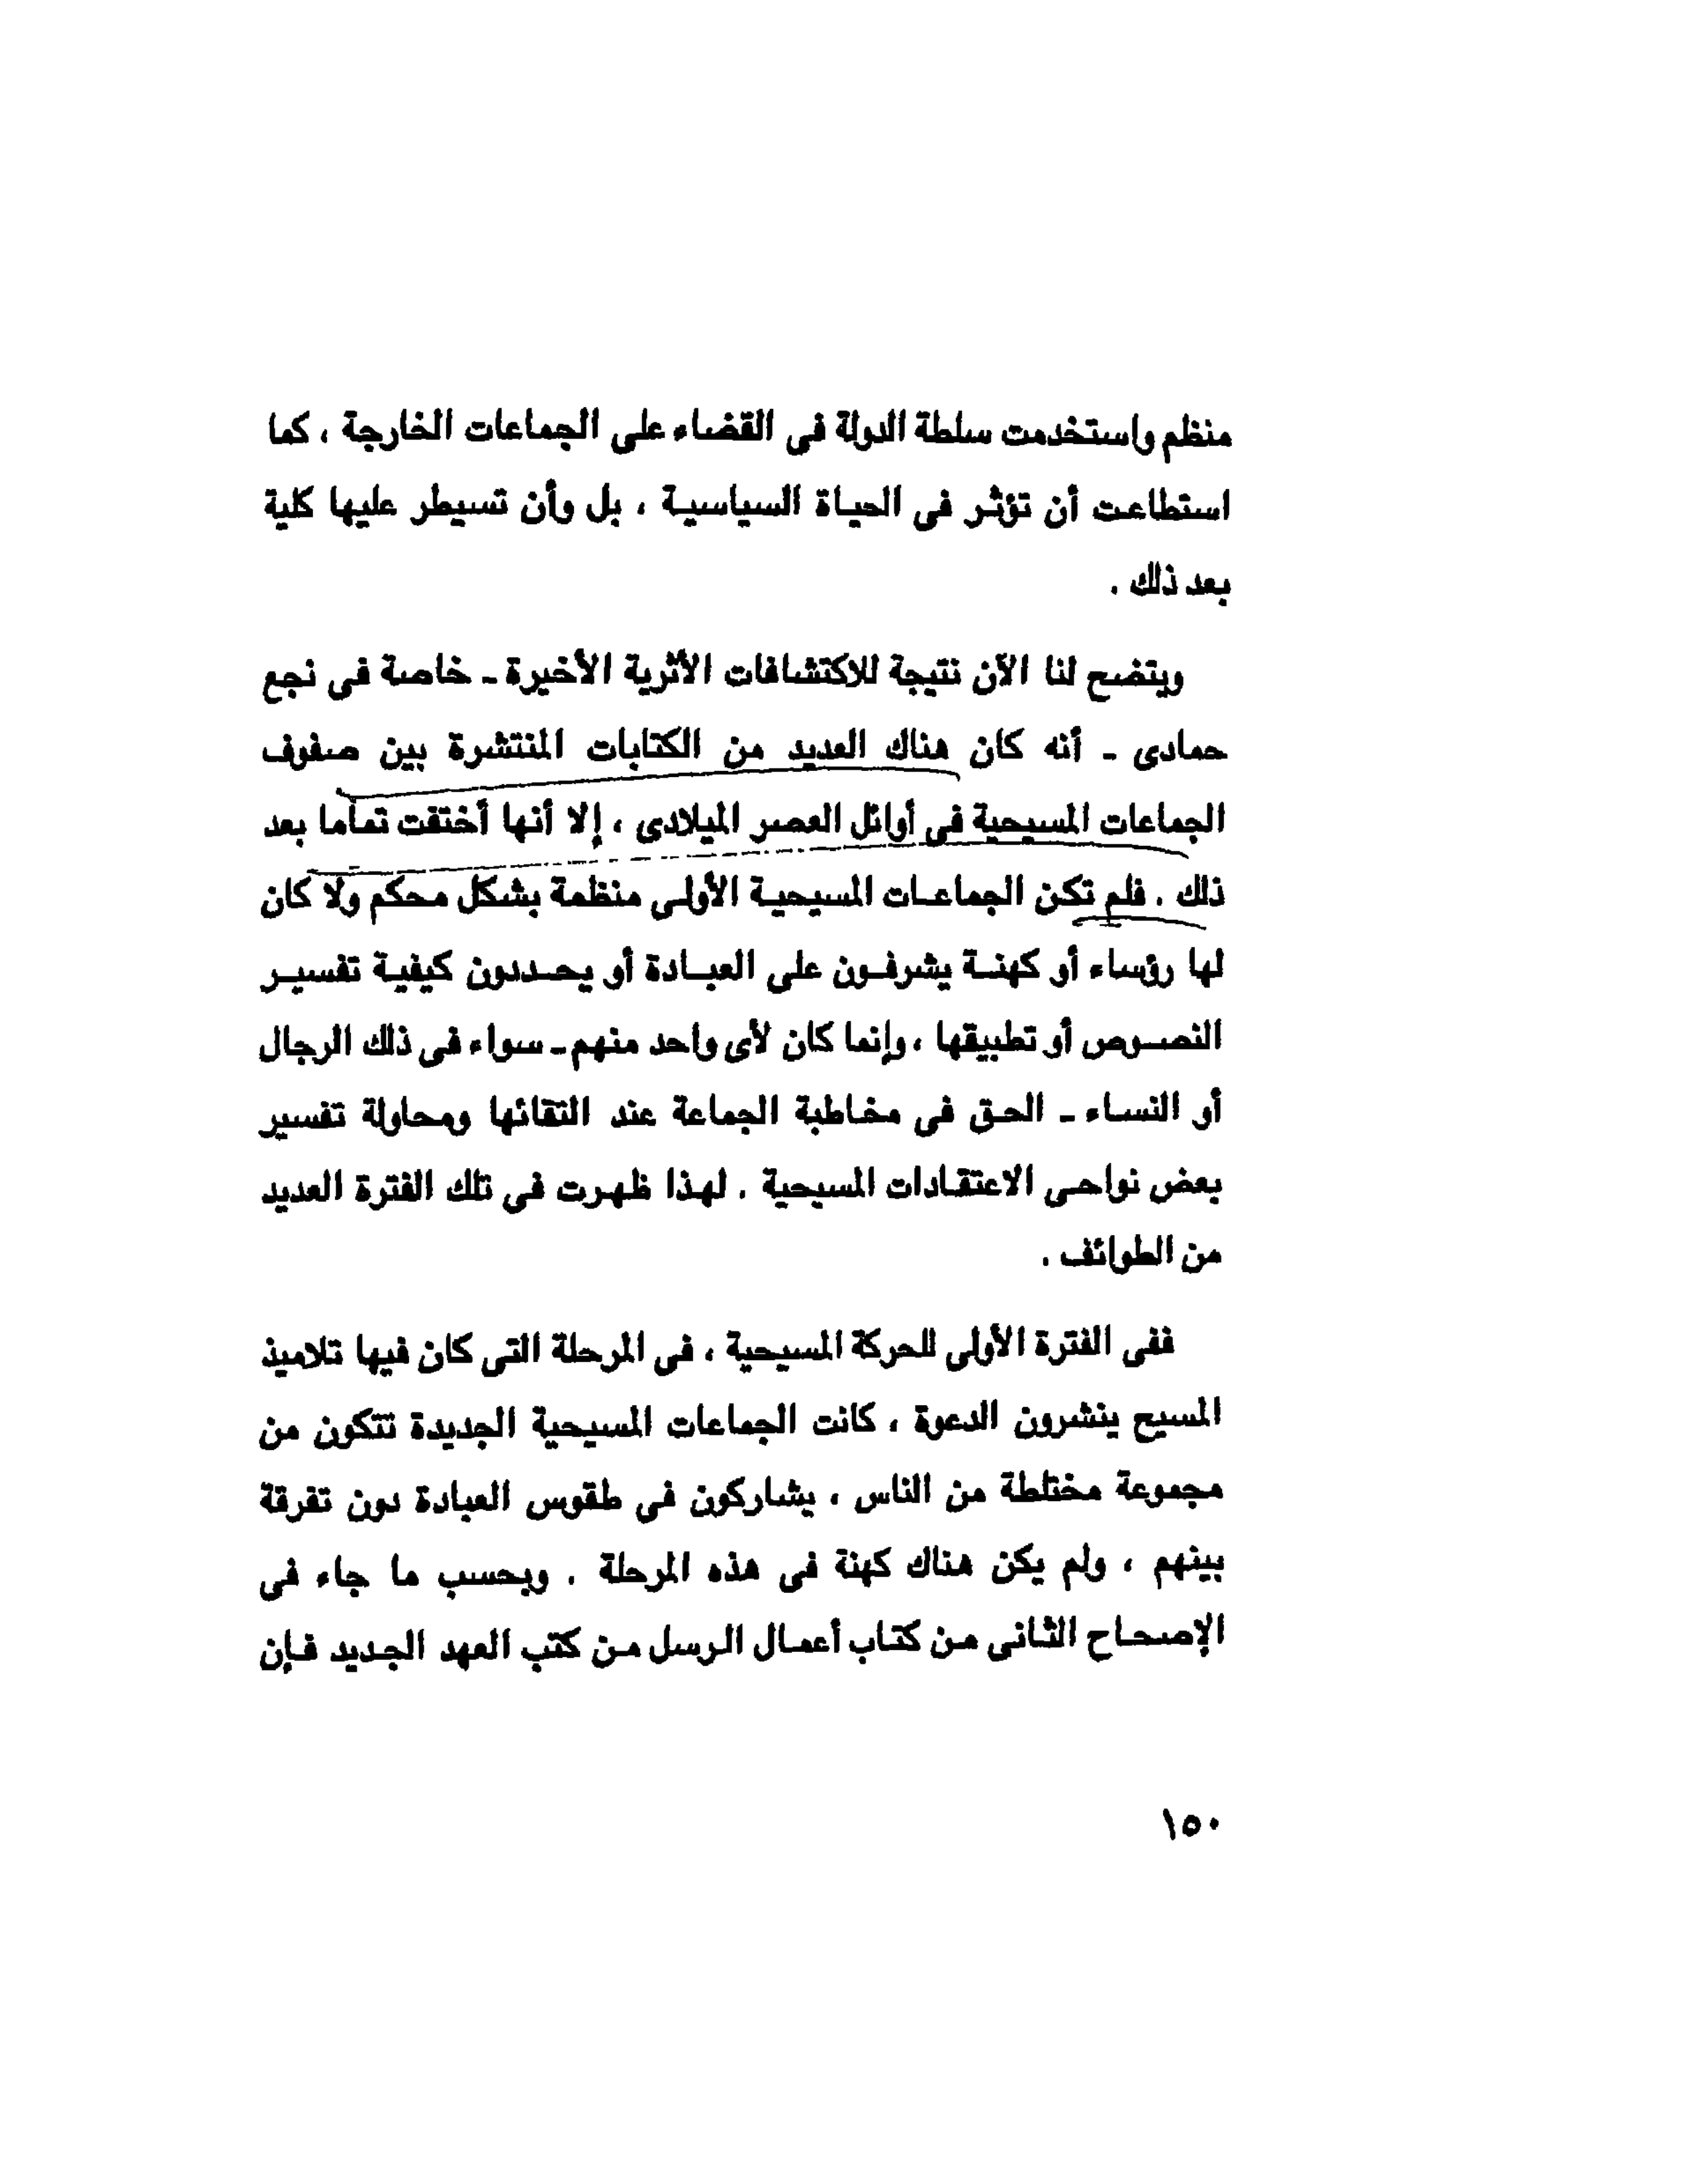 منظم واستخدمت سلطة الدولة فى القضاء على الجماعات الخارجة ، كما
استطاعت أن تؤثر فى الحياة السياسية ، بل وأن تسيطر عليها كلية
بعد ذلك .
ويتضح لنا الآن نتيجة للاكتشافات الأثرية الأخيرة - خاصة فى نجع
حمادى - أنه كان هناك العديد من الكتابات المنتشرة بين صفوف
الجماعات المسيحية فى أوائل العصر الميلادى ، إلا أنها أختفت تماما بعد
ذلك . فلم تكن الجماعات المسيحية الأولى منظمة بشكل محكم ولا كان
لها رؤساء أو كهنة يشرفون على العبادة أو يحددون كيفية تفسير
النصوص أو تطبيقها ، وإنما كان لأى واحد منهم - سواء فى ذلك الرجال
أو النساء - الحق فى مخاطبة الجماعة عند التقائها ومحاولة تفسير
بعض نواحى الاعتقادات المسيحية . لهذا ظهرت فى تلك الفترة العديد
من الطوائف .
ففى الفترة الأولى للحركة المسيحية ، فى المرحلة التى كان فيها تلاميذ
المسيح ينشرون الدعوة ، كانت الجماعات المسيحية الجديدة تتكون من
مجموعة مختلطة من الناس ، يشاركون فى طقوس العبادة دون تفرقة
بينهم ، ولم يكن هناك كهنة فى هذه المرحلة . وبحسب ما جاء فى
الإصحاح الثانى من كتاب أعمال الرسل من كتب العهد الجديد فإن
١٥٠